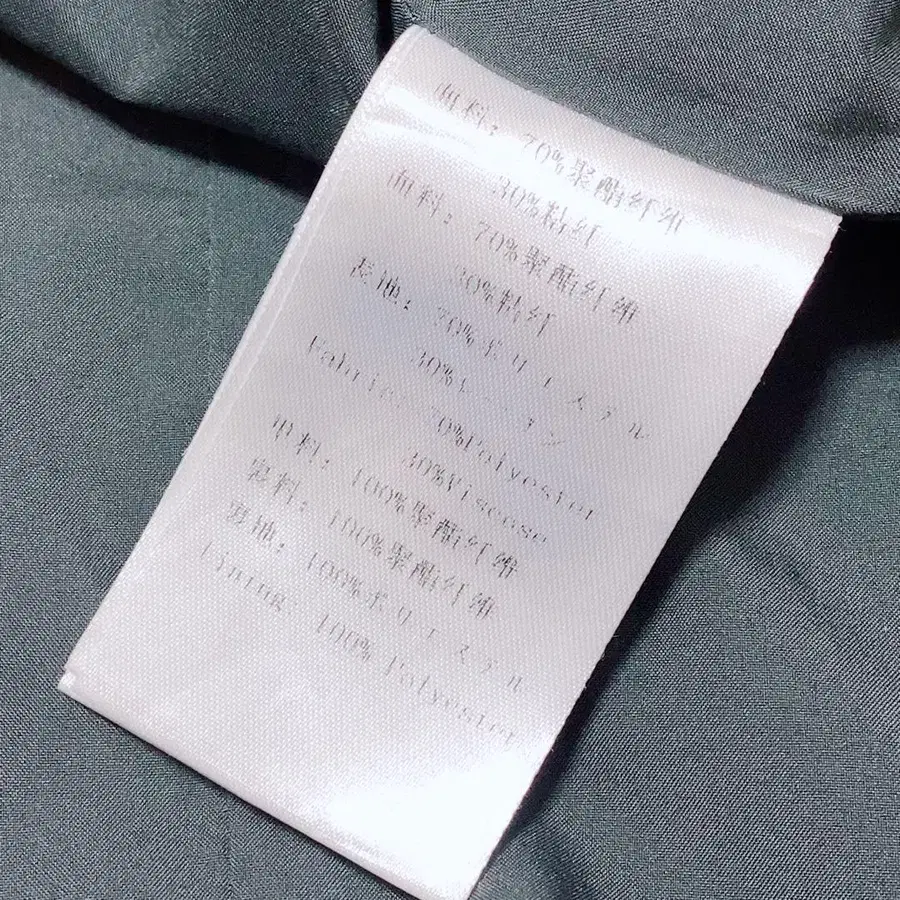 面料: 70%聚酯纤维
30%粘纤
面料: 70%聚酯纤维
30%粘纤
表地: 70%ポリエステル
30%レーヨン
Fabric: 70%Polyester
30%Viscose
里料: 100%聚酯纤维
裏料: 100%聚酯纤维
裏地: 100%ポリエステル
Lining: 100%Polyester